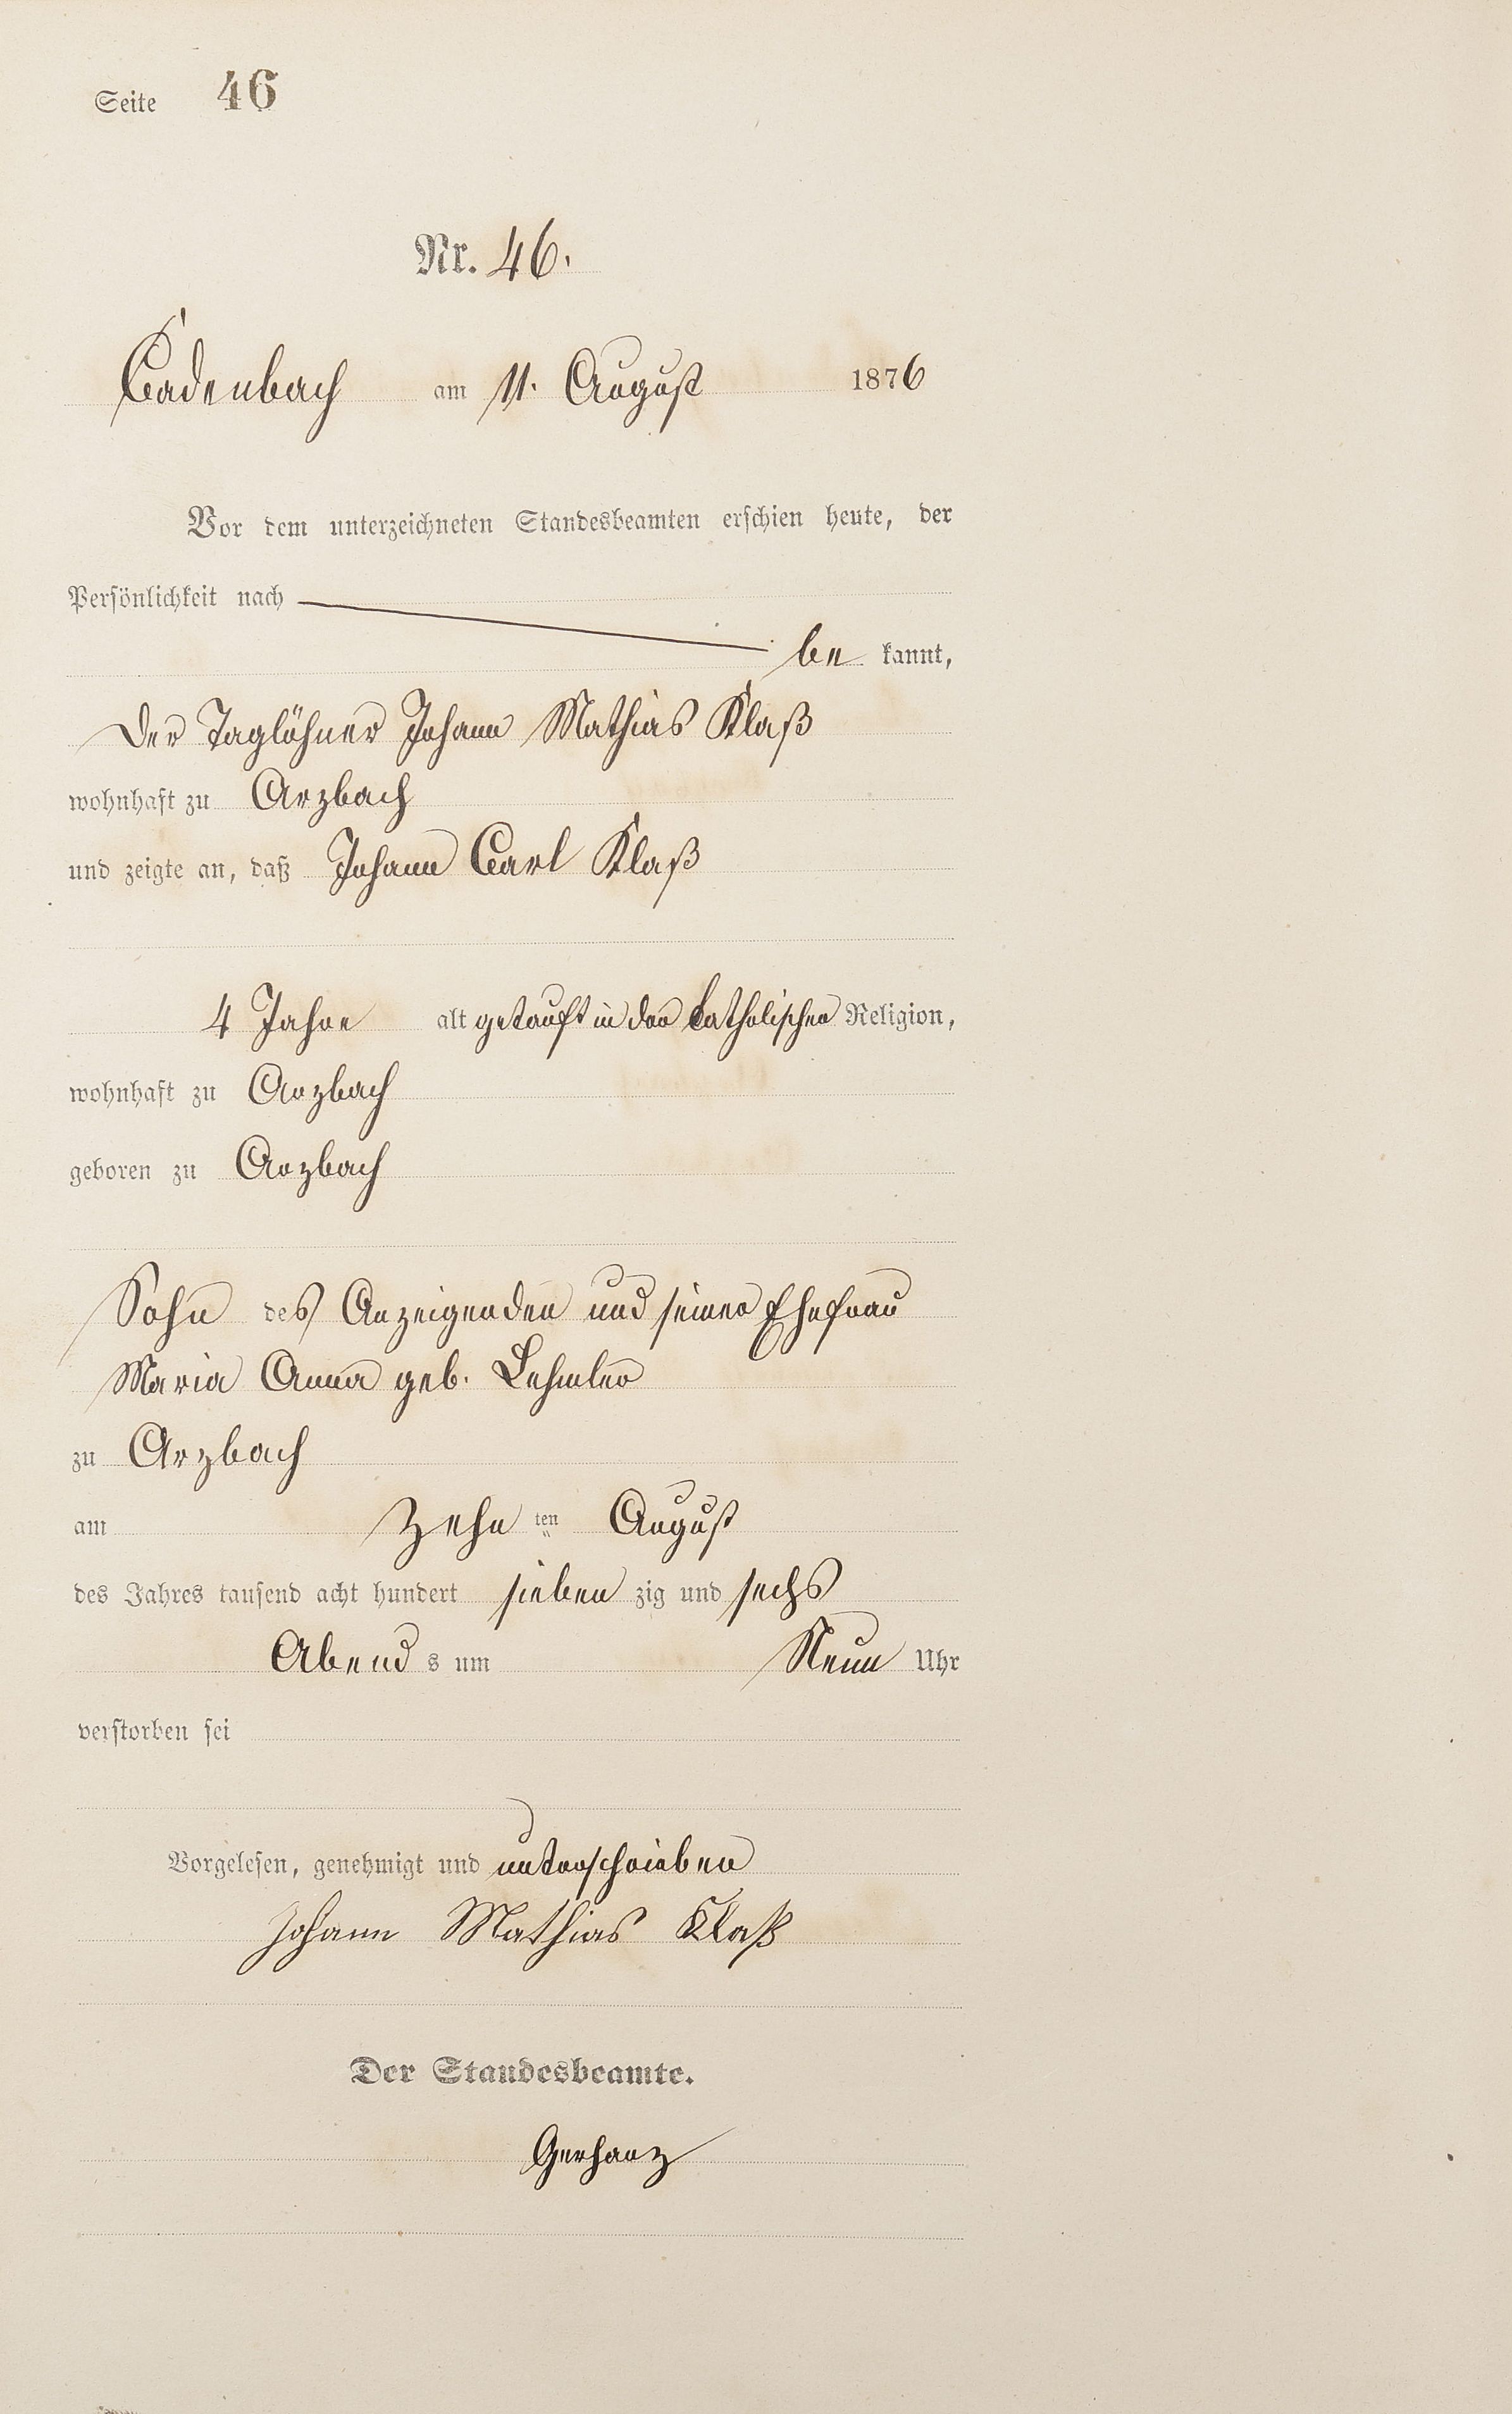 Seite 46
Nr. 46.
Cadenbach am 11. August 1876
Vor dem unterzeichneten Standesbeamten erschien heute, der
Persönlichkeit nach
be kannt,
Der Taglöhner Johann Mathias Klaß
wohnhaft zu Arzbach
und zeigte an, daß Johann Carl Klaß
4 Jahre alt getauft in der katholischen Religion,
wohnhaft zu Arzbach
geboren zu Arzbach
Sohn des Anzeigenden und seiner Ehefrau
Maria Anna geb. Lehmler
zu Arzbach
am Zehn ten August
des Jahres tausend acht hundert sieben zig und sechs
Abend s um Neun Uhr
verstorben sei
Vorgelesen, genehmigt und unterschrieben
Johann Mathias Klaß
Der Standesbeamte.
Gerharz